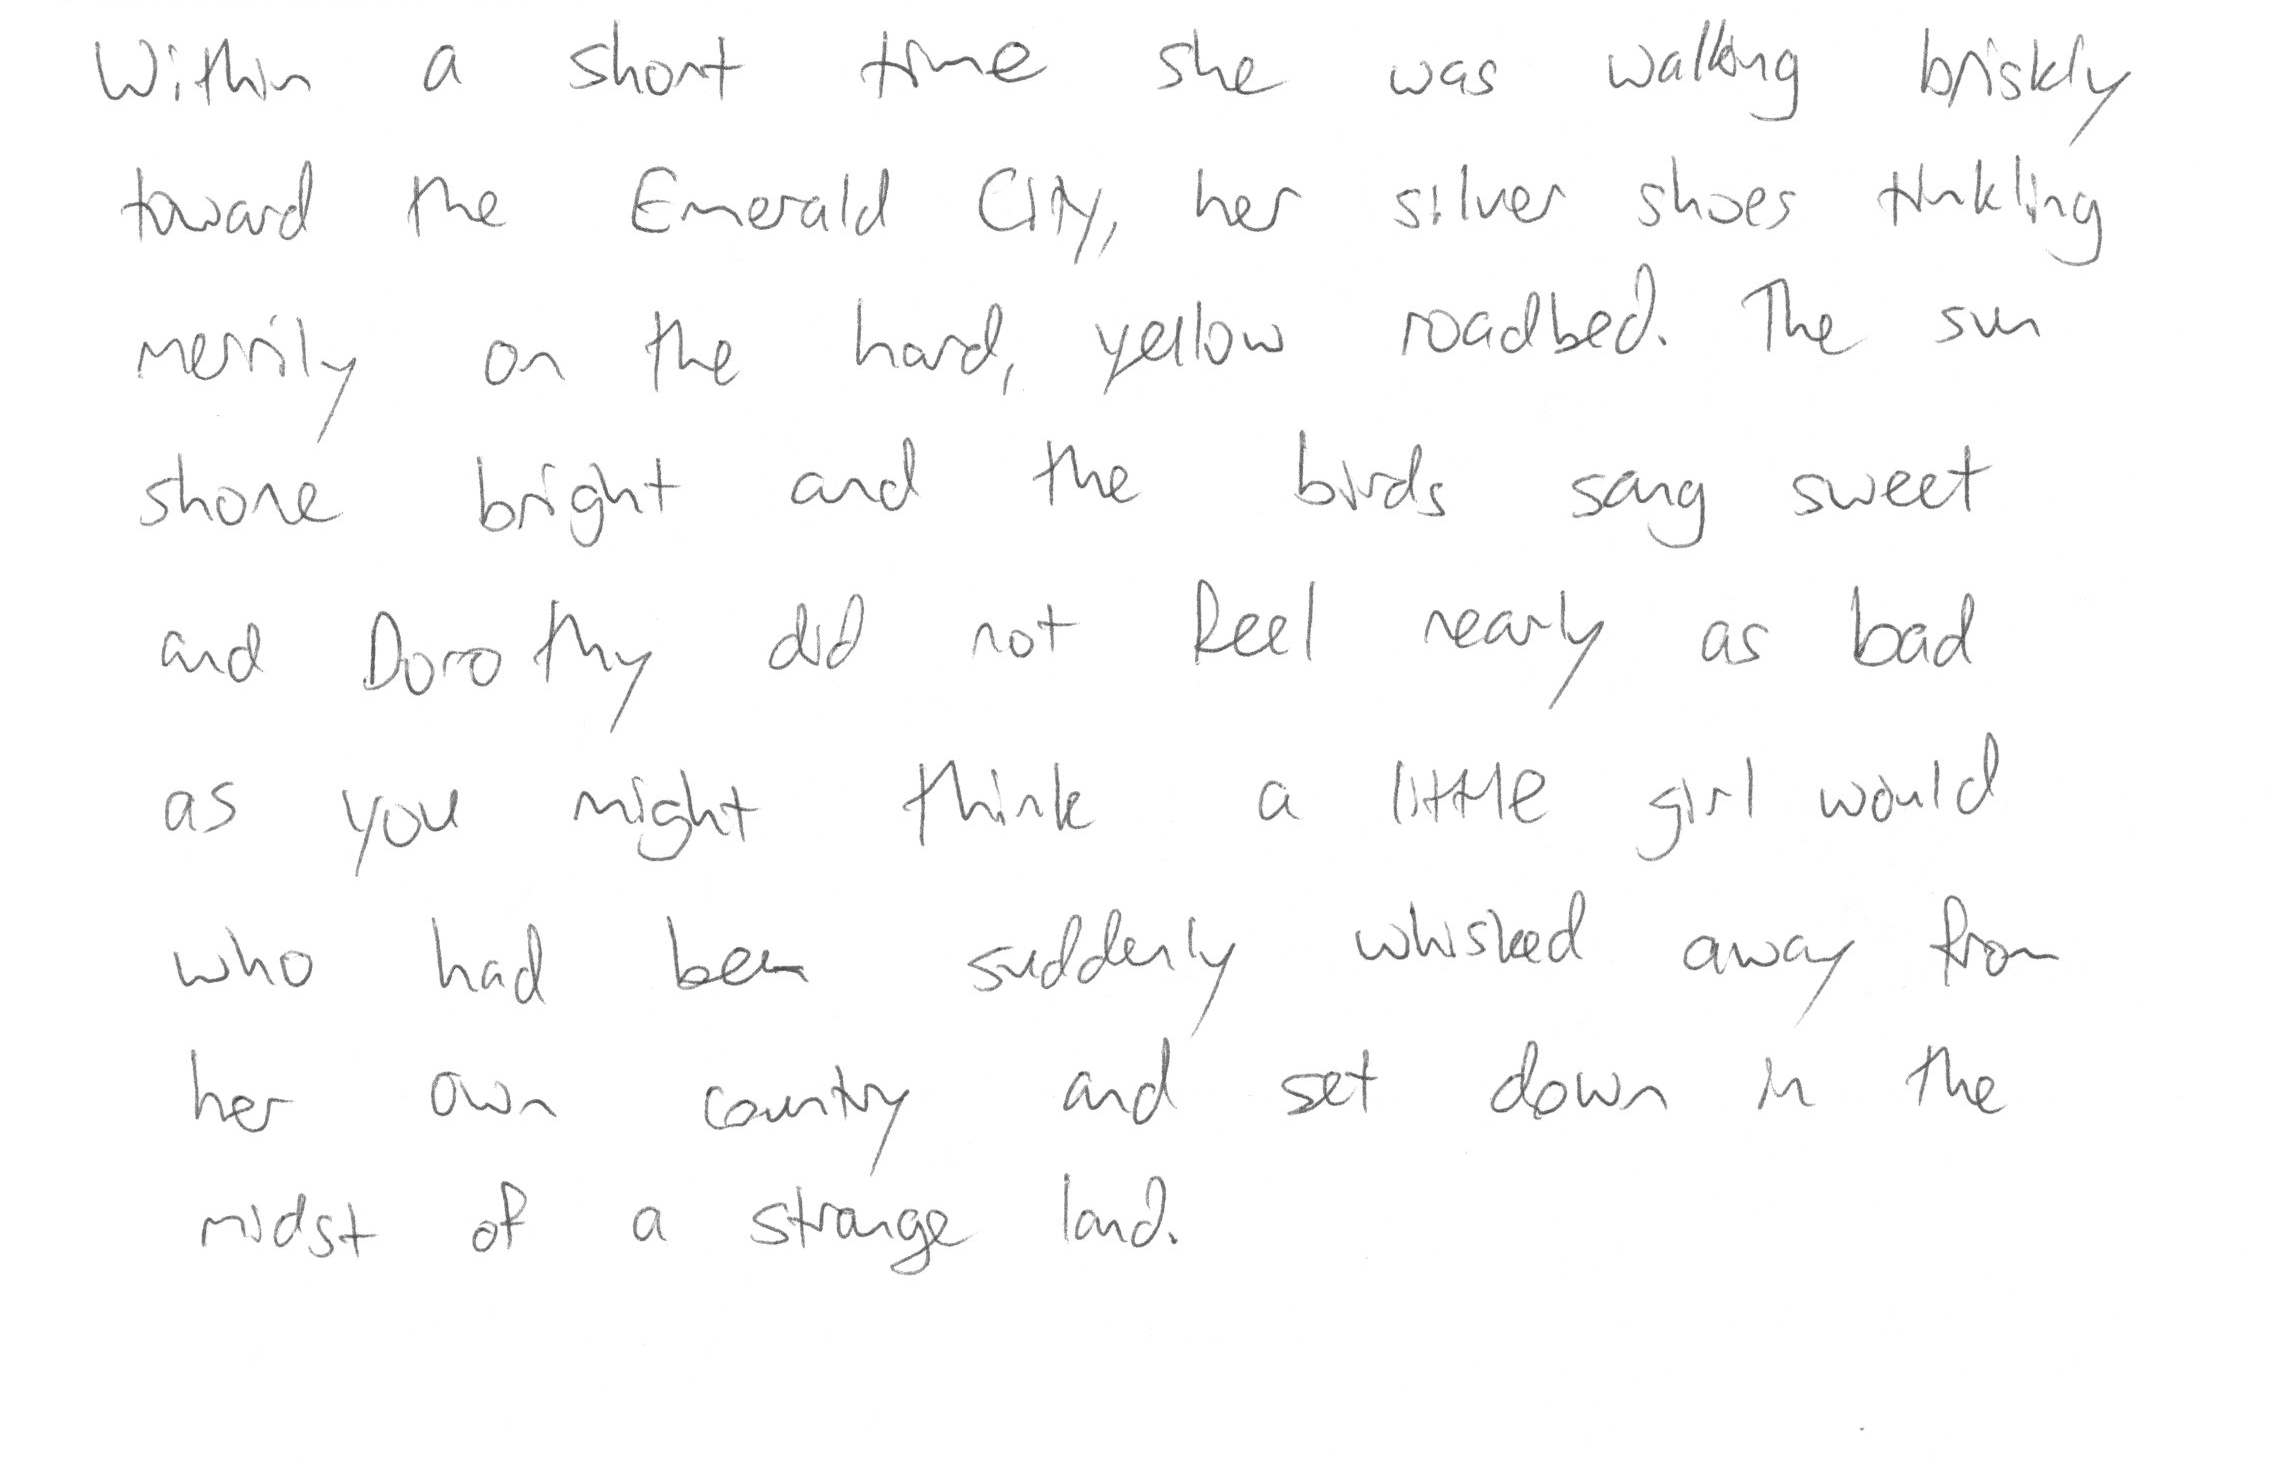 Within a short time she was walking briskly
toward the Emerald City, her silver shoes tinkling
merrily on the hard, yellow roadbed. The sun
shone bright and the birds sang sweet
and Dorothy did not feel nearly as bad
as you might think a little girl would
who had been suddenly whisked away from
her own country and set down in the
midst of a strange land.